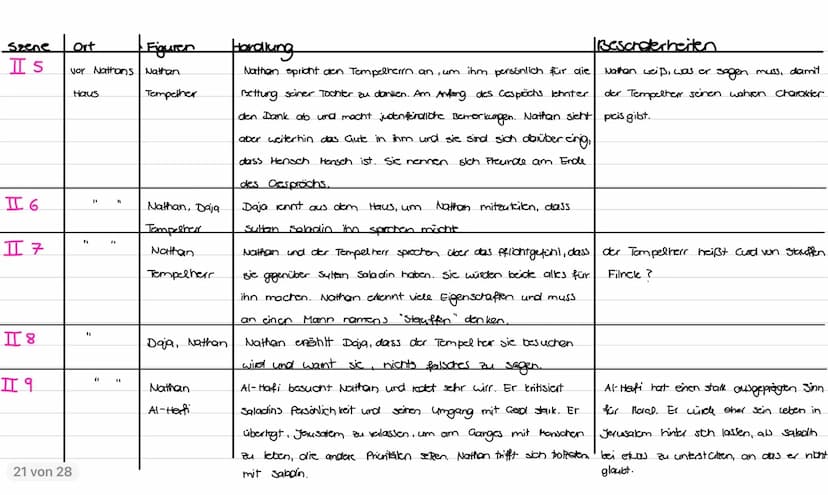 Szene Ort Figuren Handlung Besonderheiten
II 5 vor Nathans Nathan Nathan spricht den Tempelherrn an, um ihm persönlich für die Nathan weiß, was er sagen muss, damit
Haus Tempelher Rettung seiner Tochter zu danken. Am Anfang des Gesprächs lehnter der Tempelherr seinen wahren Charakter
den Dank ab und macht judenfeindliche Bemerkungen. Nathan sieht preis gibt.
aber weiterhin das Gute in ihm und sie sind sich darüber einig,
dass Mensch Mensch ist. Sie nennen sich Freunde am Ende
des Gesprächs.
II 6 " " Nathan, Daja Daja rennt aus dem Haus, um Nathan mitzuteilen, dass
Tempelherr Sultan Saladin ihn sprechen möchte
II 7 " " Nathan Nathan und der Tempelherr sprechen über das Pflichtgefühl, dass der Tempelherr heißt Curd von Stauffen
Tempelherr sie gegenüber Sultan Saladin haben. Sie würden beide alles für Filneck ?
ihn machen. Nathan erkennt viele Eigenschaften und muss
an einen Mann namens "Stauffen" denken.
II 8 " Daja, Nathan Nathan erzählt Daja, dass der Tempelher sie besuchen
wird und warnt sie, nichts falsches zu sagen.
II 9 " " Nathan Al-Hafi besucht Nathan und redet sehr wirr. Er kritisiert Al-Hafi hat einen stark ausgeprägten Sinn
Al-Hafi Saladins Persönlichkeit und seinen Umgang mit Geld stark. Er für Moral. Er würde eher sein Leben in
überlegt, Jerusalem zu verlassen, um am Ganges mit Menschen Jerusalem hinter sich lassen, als Saladin
zu leben, die andere Prioritäten setzen. Nathan trifft sich bei etwas zu unterstützen, an das er nicht
mit Saladin. glaubt.
21 von 28